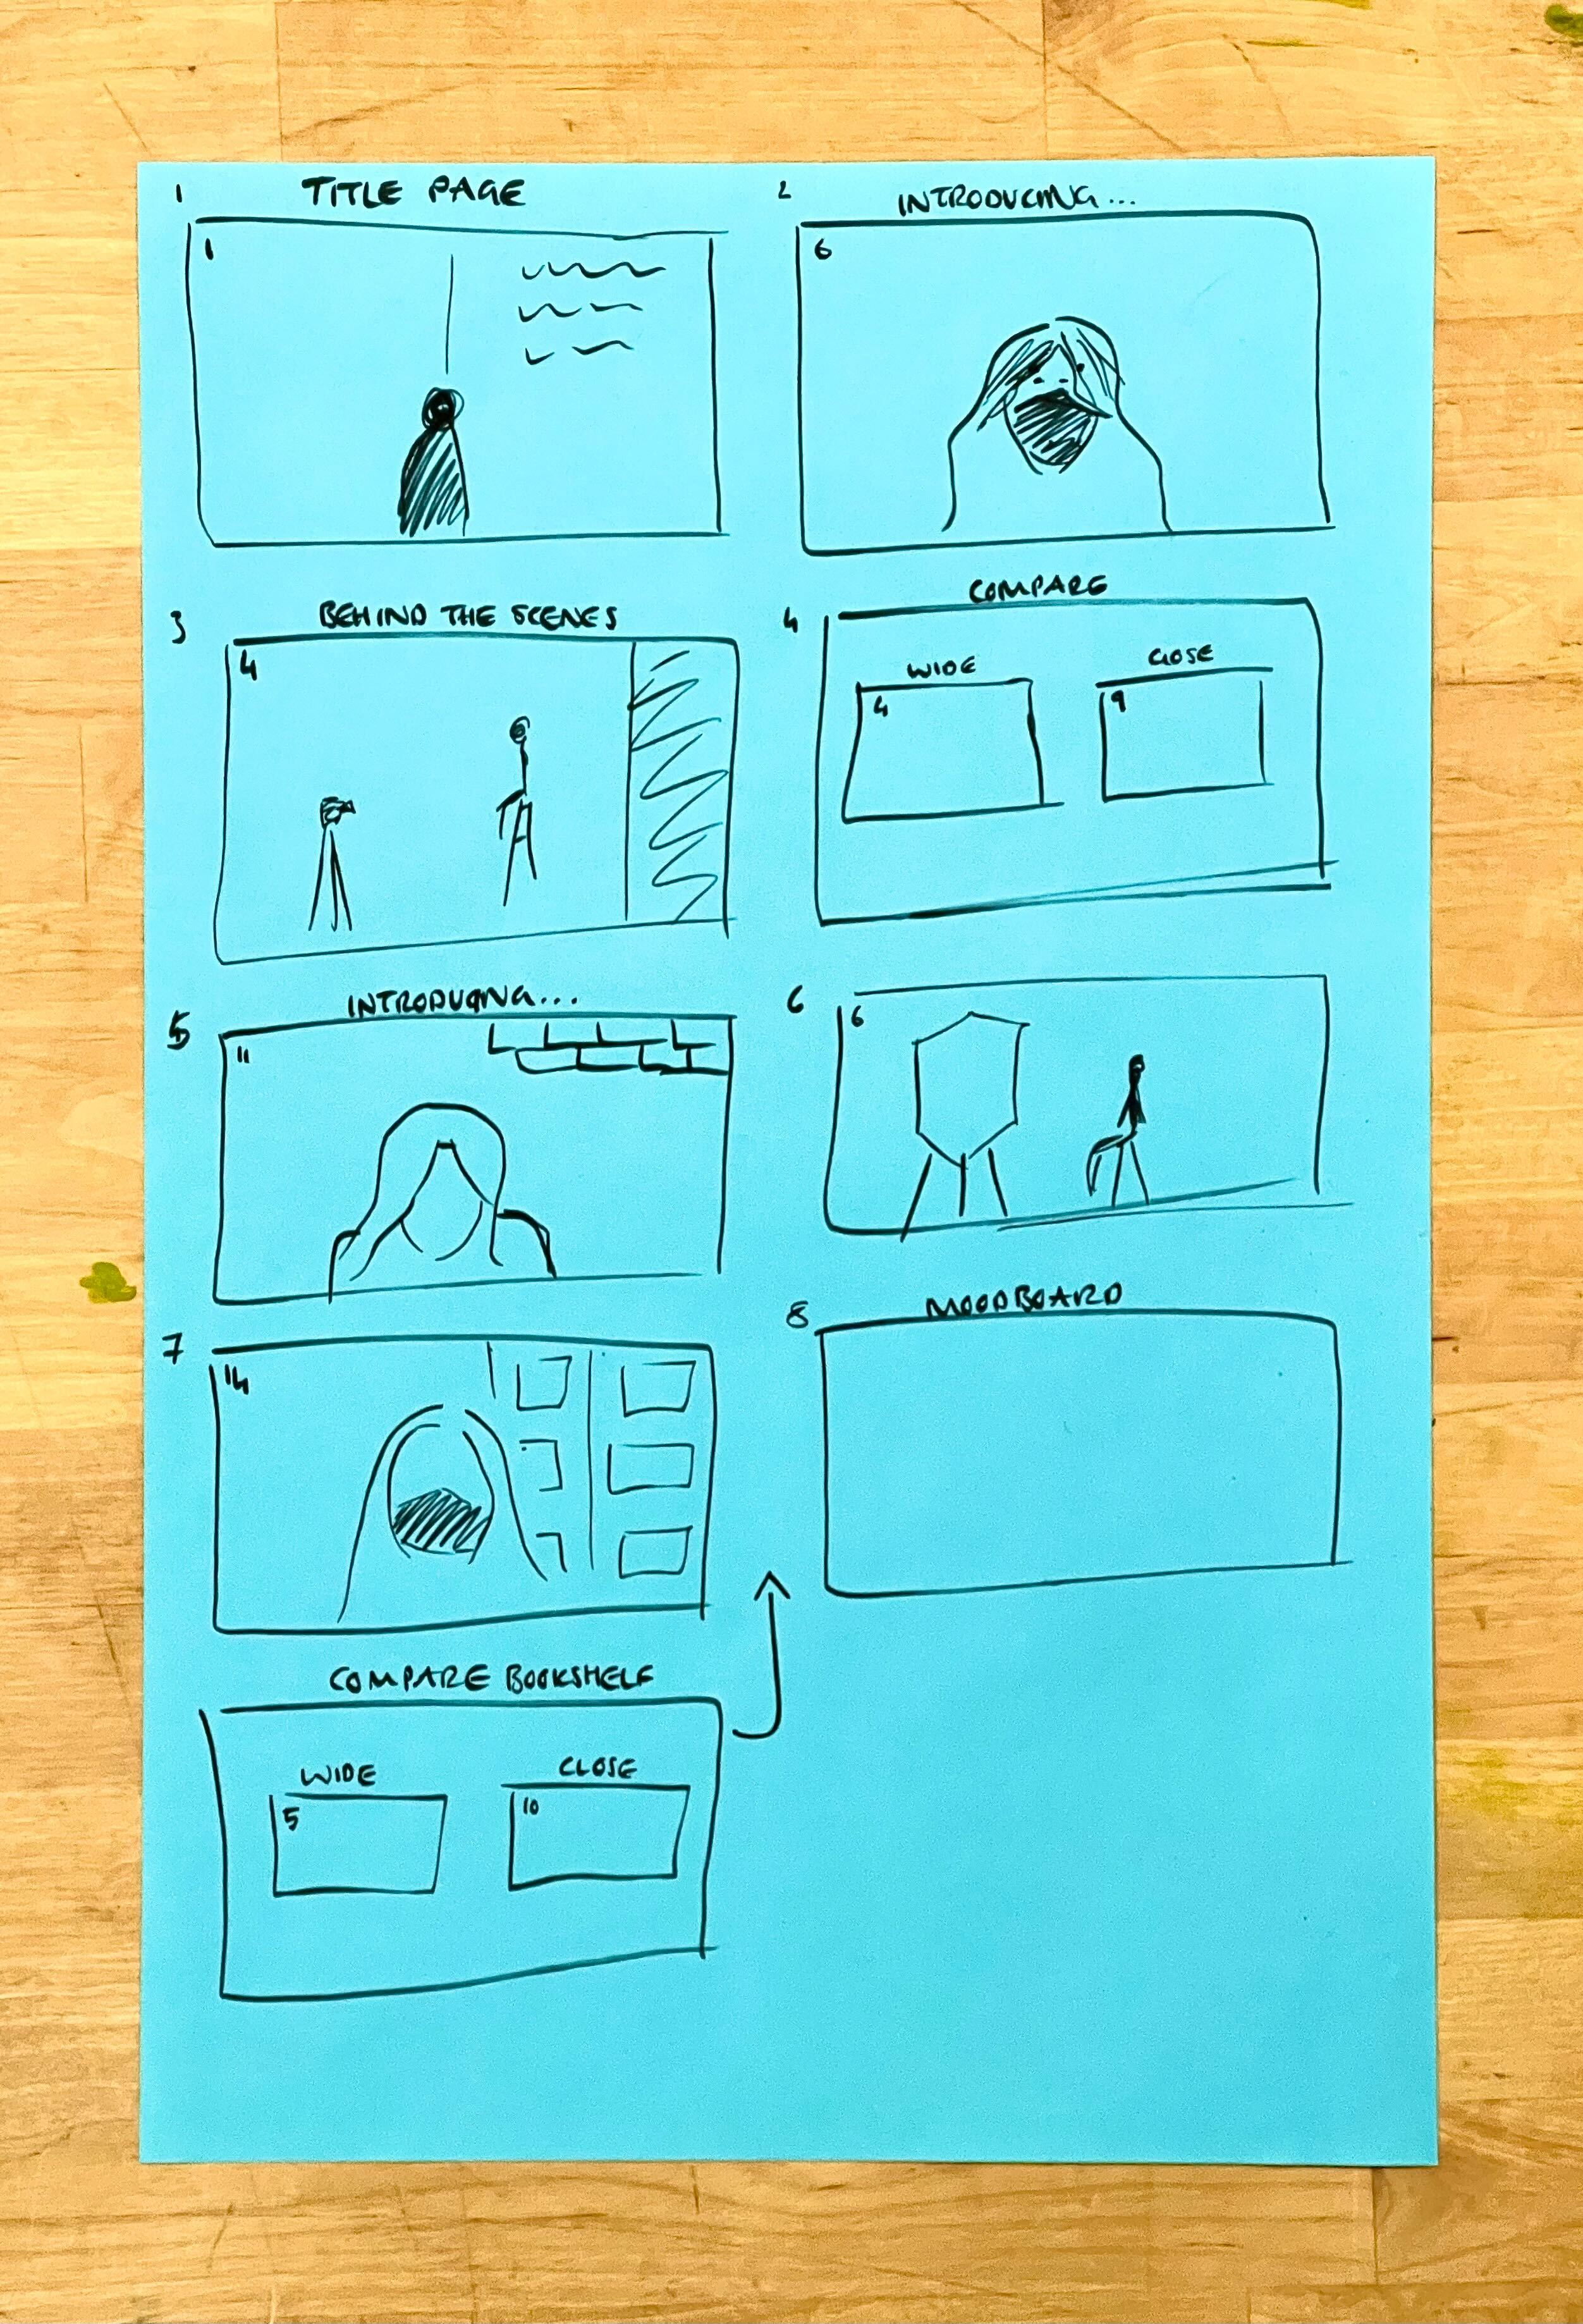 1 TITLE PAGE
1
2 INTRODUCING...
6
3 BEHIND THE SCENES
4
4 COMPARE
WIDE
4
CLOSE
9
5 INTRODUCING...
11
6
6
7
14
8 MOODBOARD
COMPARE BOOKSHELF
WIDE
5
CLOSE
10